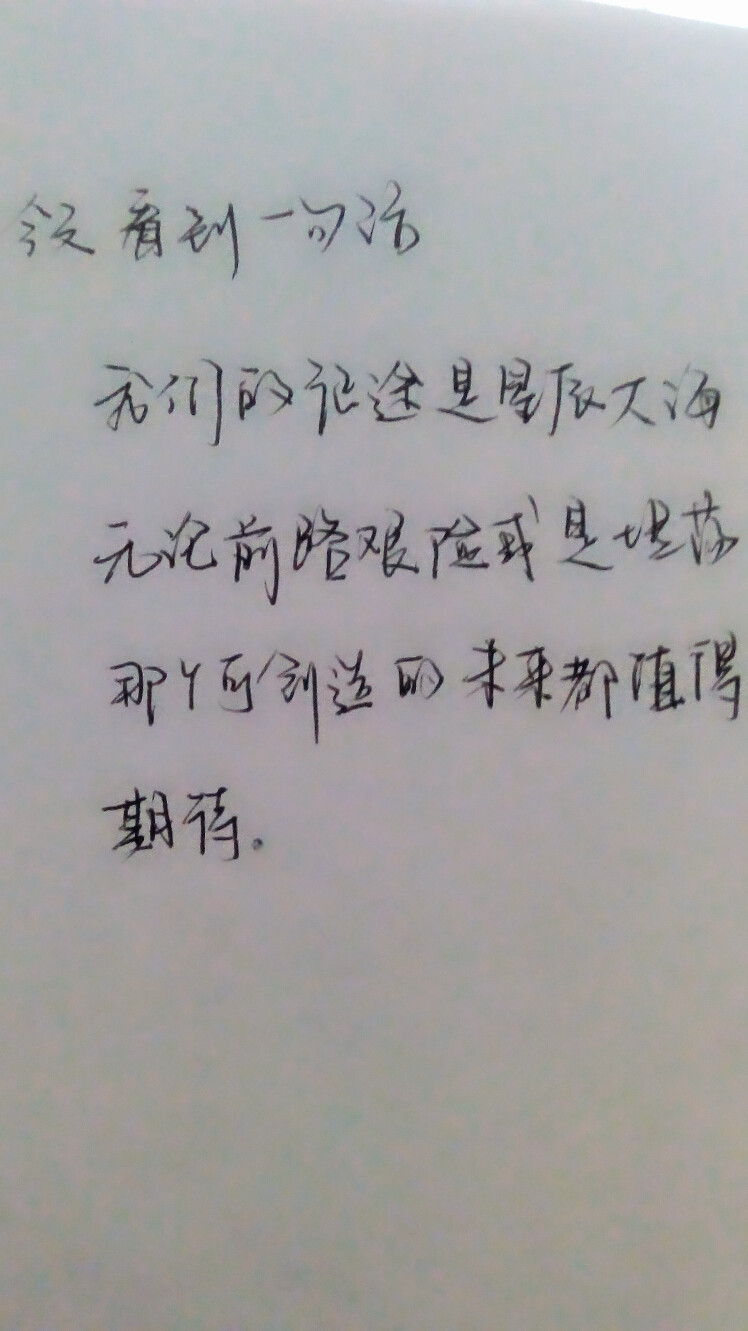 今天看到一句话
我们的征途是星辰大海
无论前路艰险或是坦荡
那个可创造的未来都值得
期待。